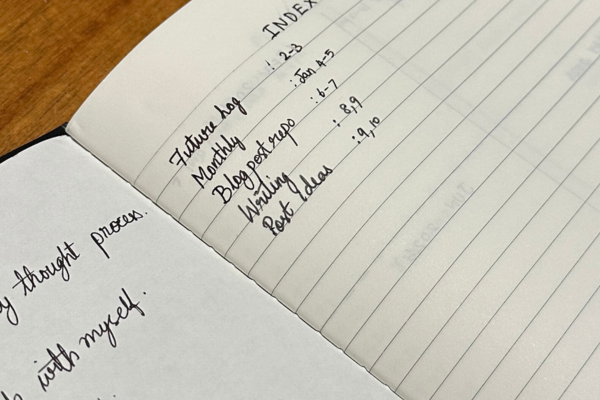 thought process.
with myself.
INDEX
Future log : 2-3
Monthly : Jan 4-5
Blog post repo : 6-7
Writing : 8,9
Post Ideas : 9,10